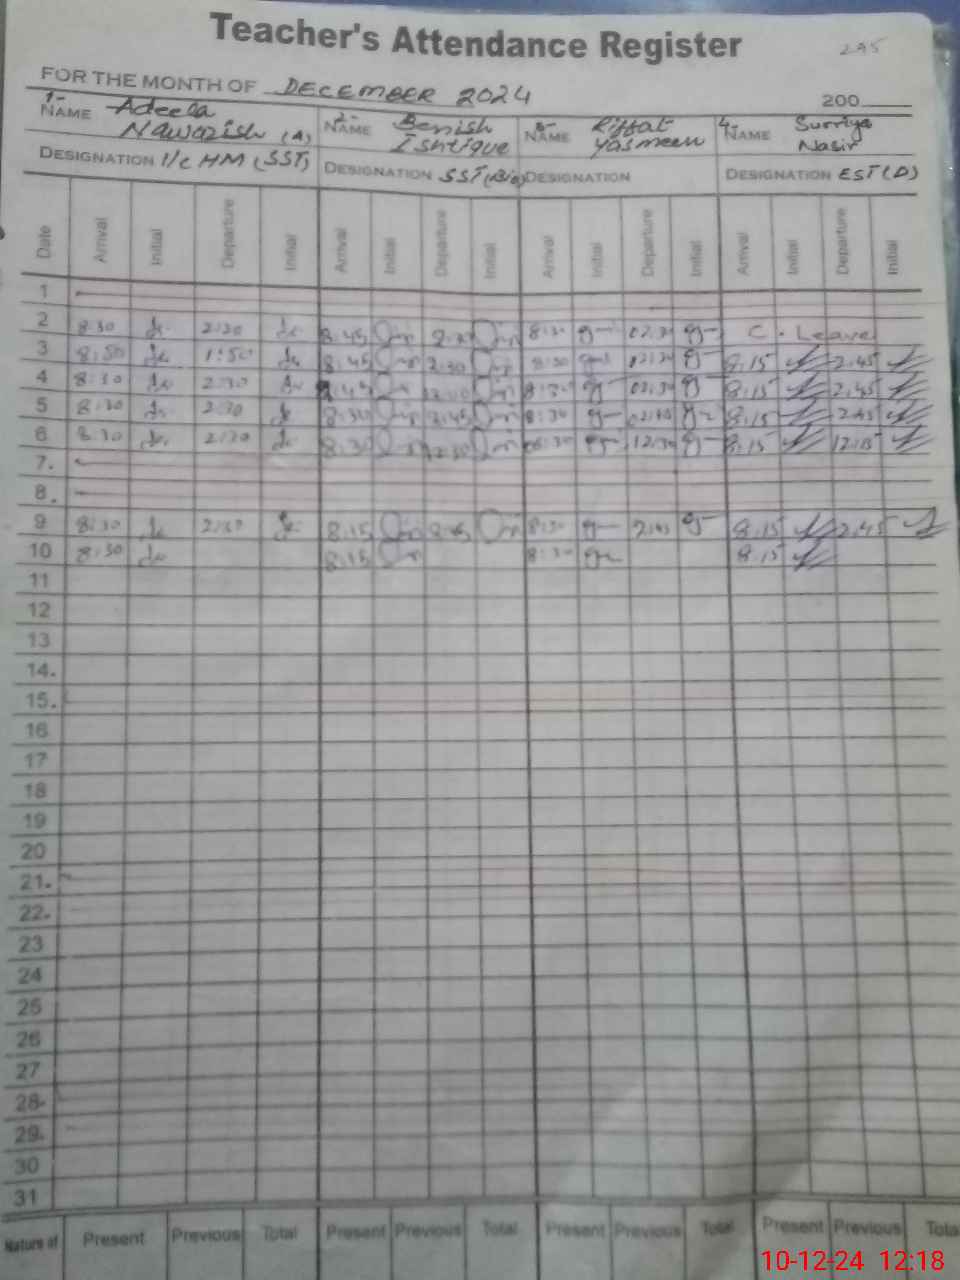 Teacher's Attendance Register
245
FOR THE MONTH OF DECEMBER 2024
200
1- NAME Adeela Nawazish (A) 2- NAME Benish Ishtique 3- NAME Riffat Yasmeen 4- NAME Surriya Nasir
DESIGNATION I/c HM (SST) DESIGNATION SST (Bio) DESIGNATION DESIGNATION EST (D)
Date Arrival Initial Departure Initial Arrival Initial Departure Initial Arrival Initial Departure Initial Arrival Initial Departure Initial
1
2 8:30 2:30 8:45 8:30 02:30 C. Leave
3 8:50 1:50 8:45 2:30 8:30 02:30 8:15 2:45
4 8:30 2:30 8:45 8:30 02:30 8:15 2:45
5 8:30 2:30 8:30 2:45 8:30 8:15 2:45
6 8:30 2:30 8:30 12:30 08:30 12:30 8:15 12:15
7.
8.
9 8:30 2:30 8:15 8:30 2:45 8:15 2:45
10 8:30 8:15 8:30 8:15
11
12
13
14.
15.
16
17
18
19
20
21.
22.
23
24
25
26
27
28.
29.
30
31
Nature of Present Previous Total Present Previous Total Present Previous Total Present Previous Total
10-12-24 12:18